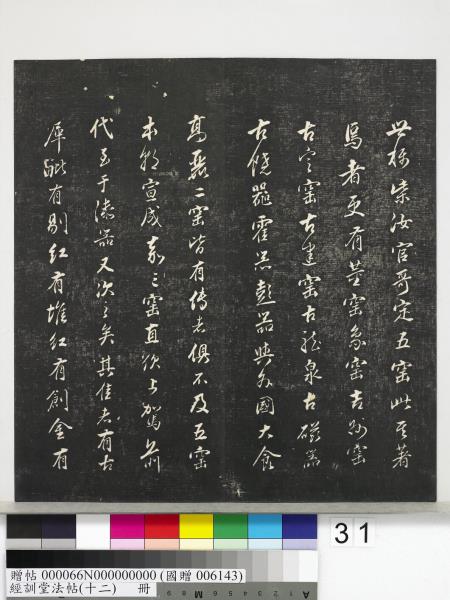 世稱柴汝官哥定五窑此其著
焉者更有董窑象窑吉州窑
古定窑古建窑古龍泉古磁器
古饒器霍器彭器與外國大食
高麗二窑皆有傳者俱不及五窑
本朝宣成嘉三窑直欲上駕前
代至于漆器又次之矣其佳者有古
犀毗有剔紅有堆紅有創金有
31
贈帖 000066N000000000 (國贈 006143)
經訓堂法帖(十二) 冊